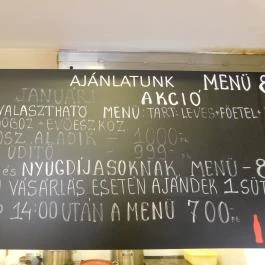 AJÁNLATUNK MENÜ
JANUÁRI AKCIÓ
VÁLASZTHATÓ MENÜ: TART: LEVES+FŐÉTEL+
DOBOZ + EVŐESZKÖZ
1000.-Ft
ÜDÍTŐ - 999.-
és NYUGDÍJASOKNAK, MENÜ - 8
VÁSÁRLÁS ESETÉN AJÁNDÉK 1 SÜT
14:00 UTÁN A MENÜ 700.-Ft